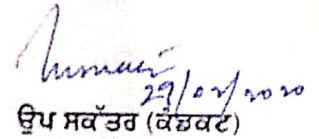 29/07/2020
ਉਪ ਸਕੱਤਰ (ਕੰਡਕਟ)